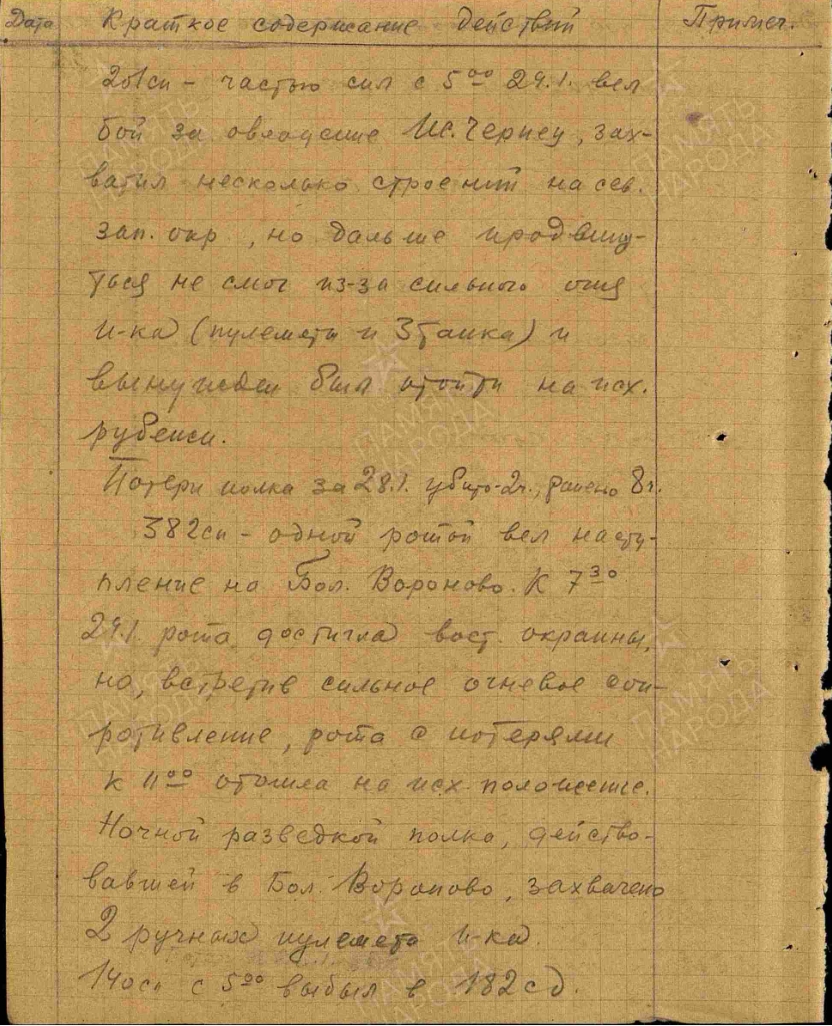 Дата Краткое содержание действий Примеч.
261сп - частью сил с 5⁰⁰ 29.1. вел
бой за овладение Ис. Чернец, зах-
ватил несколько строений на сев.
зап. окр, но дальше продвину-
ться не смог из-за сильного огня
п-ка (пулеметы и 3 танка) и
вынужден был отойти на исх.
рубежи.
Потери полка за 28.1. убито-2ч., ранено 8ч.
382сп - одной ротой вел насту-
пление на Бол. Вороново. К 7³⁰
29.1. рота достигла вост. окраины,
но, встретив сильное огневое соп-
ротивление, рота с потерями
к 11⁰⁰ отошла на исх. положение.
Ночной разведкой полка, действо-
вавшей в Бол. Вороново, захвачено
2 ручных пулемета п-ка.
140сп с 5⁰⁰ выбыл в 182сд.
ПАМЯТЬ НАРОДА